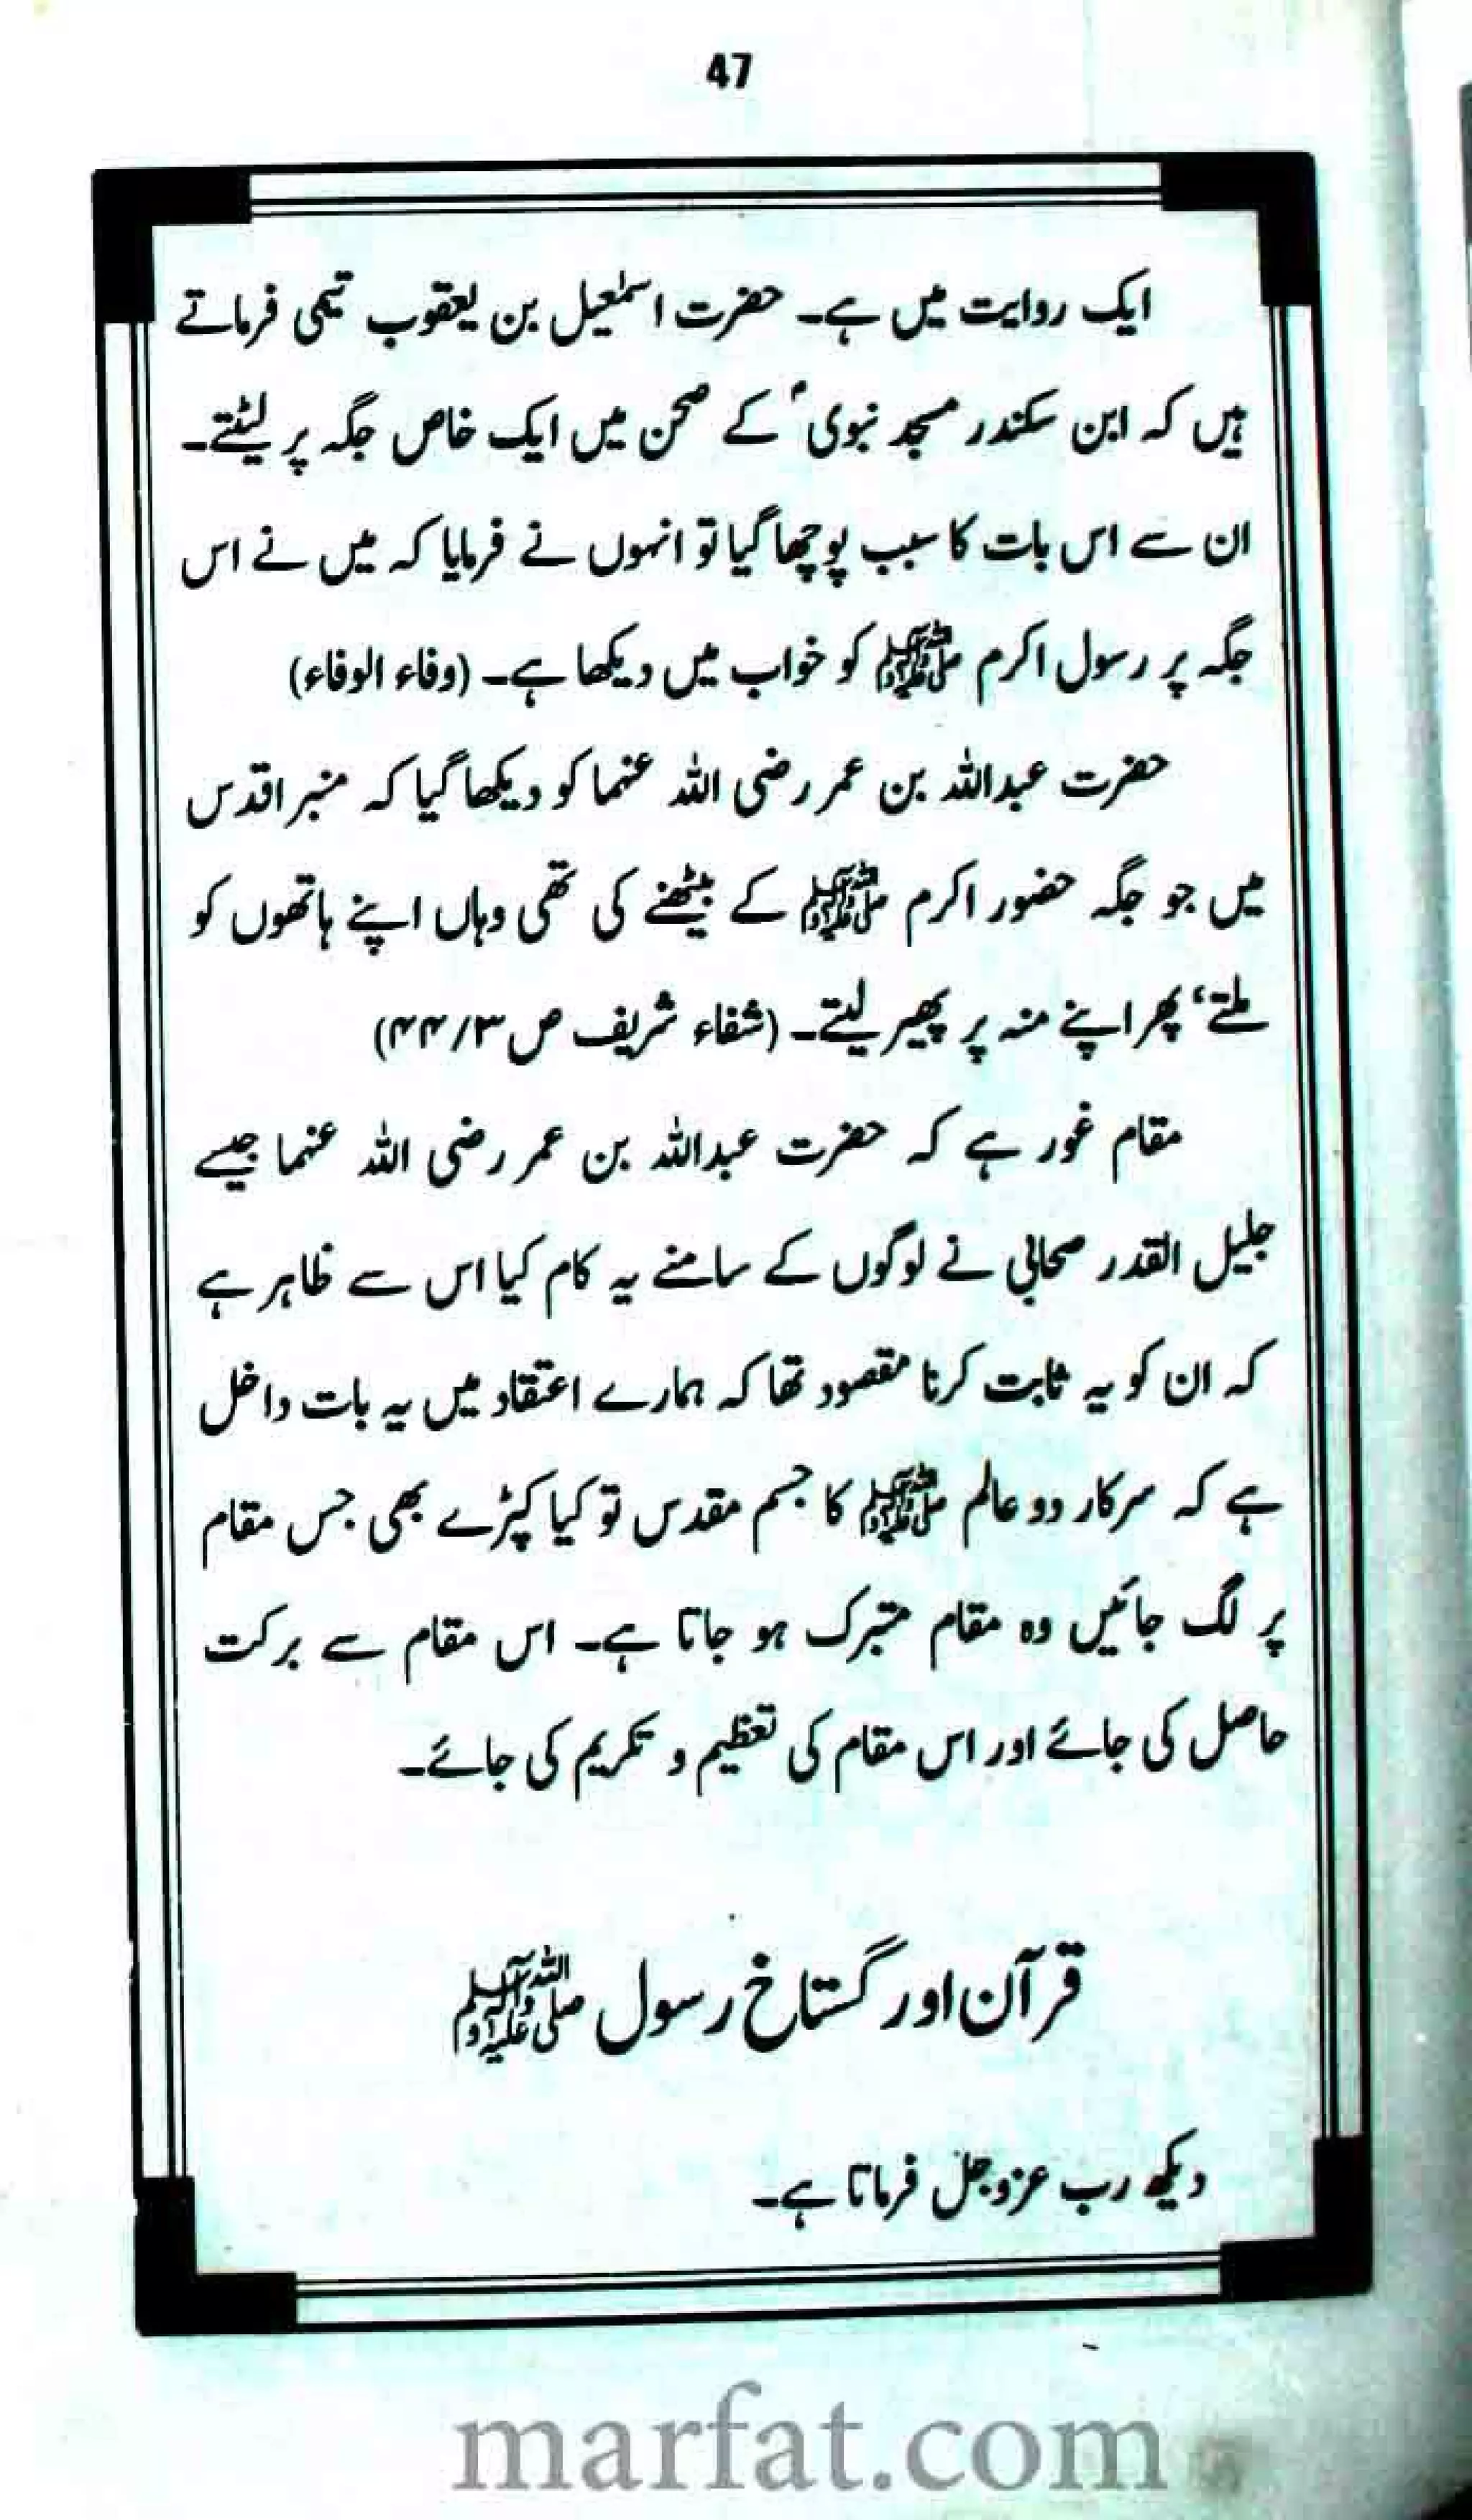 47
ایک روایت میں ہے۔ حضرت اسمٰعیل بن یعقوب تیمی فرماتے
ہیں کہ ابن سکندر مسجد نبوی ؐ کے صحن میں ایک خاص جگہ پر لیٹتے۔
ان سے اس بات کا سبب پوچھا گیا تو انہوں نے فرمایا کہ میں نے اس
جگہ پر رسول اکرم ﷺ کو خواب میں دیکھا ہے۔ (وفاء الوفاء)
حضرت عبداللہ بن عمر رضی اللہ عنہما کو دیکھا گیا کہ منبر اقدس
میں جو جگہ حضور اکرم ﷺ کے بیٹھنے کی تھی وہاں اپنے ہاتھوں کو
ملتے‘ پھر اپنے منہ پر پھیر لیتے۔ (شفاء شریف ص ۴۴/۳)
مقام غور ہے کہ حضرت عبداللہ بن عمر رضی اللہ عنہما جیسے
جلیل القدر صحابی نے لوگوں کے سامنے یہ کام کیا اس سے ظاہر ہے
کہ ان کو یہ ثابت کرنا مقصود تھا کہ ہمارے اعتقاد میں یہ بات داخل
ہے کہ سرکار دو عالم ﷺ کا جسم مقدس تو کیا کپڑے بھی جس مقام
پر لگ جائیں وہ مقام متبرک ہو جاتا ہے۔ اس مقام سے برکت
حاصل کی جائے اور اس مقام کی تعظیم و تکریم کی جائے۔
قرآن اور گستاخ رسول ﷺ
دیکھ رب عزوجل فرماتا ہے۔
marfat.com